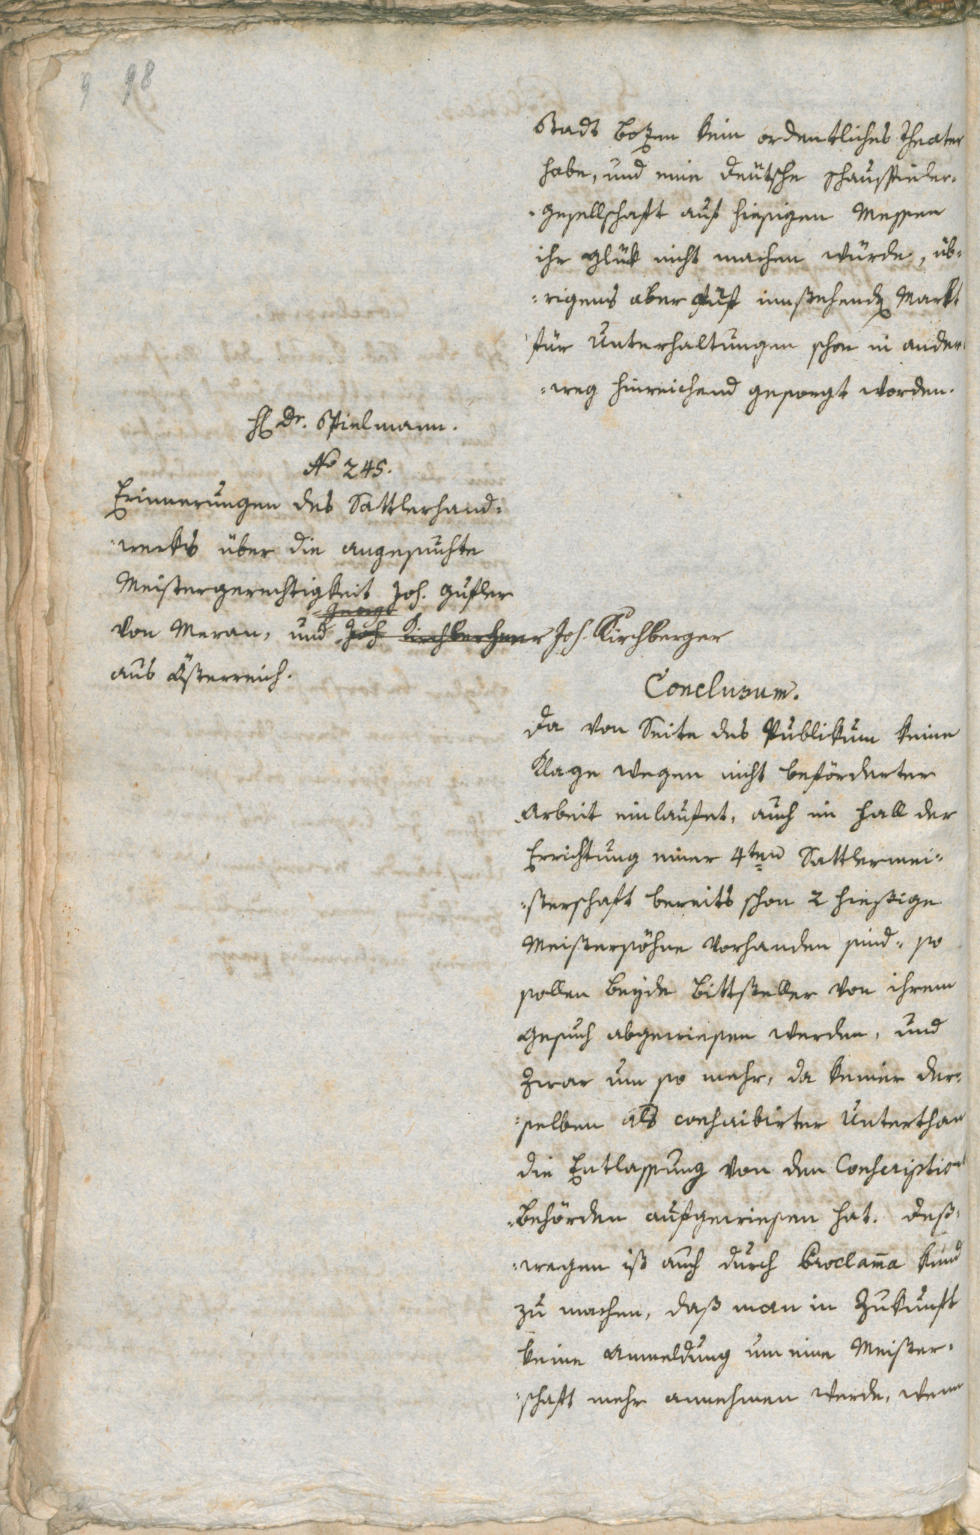 9 98
Stadt Bozen kein ordentliches Theater
habe, und eine deutsche Schauspieler-
-gesellschaft auf hiesigen Messen
ihr Glük nicht machen würde, üb-
-rigens aber auf innstehenden Markt
für Unterhaltungen schon in ander-
-weg hinreichend gesorgt worden.
H Dr. Spielmann.
No 245.
Erinnerungen des Sattlerhand-
-werks über die angesuchte
Meistergerechtigkeit Joh. Gufler
von Meran, und Joh. Kirchberger
aus Österreich.
Conclusum.
Da von Seite des Publikum keine
Klage wegen nicht beförderter
Arbeit einlaufet, auch im Fall der
Errichtung einer 4ten Sattlermei-
-sterschaft bereits schon 2 hießige
Meistersöhne vorhanden sind, so
sollen beyde Bittsteller von ihrem
Gesuch abgewiesen werden, und
zwar um so mehr, da keiner der-
-selben als Unterthan
die Entlassung von den Conscriptions
-Behörden aufgewiesen hat. Deß-
-wegen ist auch durch Proclama kund
zu machen, daß man in Zukunft
keine Anmeldung um eine Meister-
-schaft mehr annehmen werde, wenn